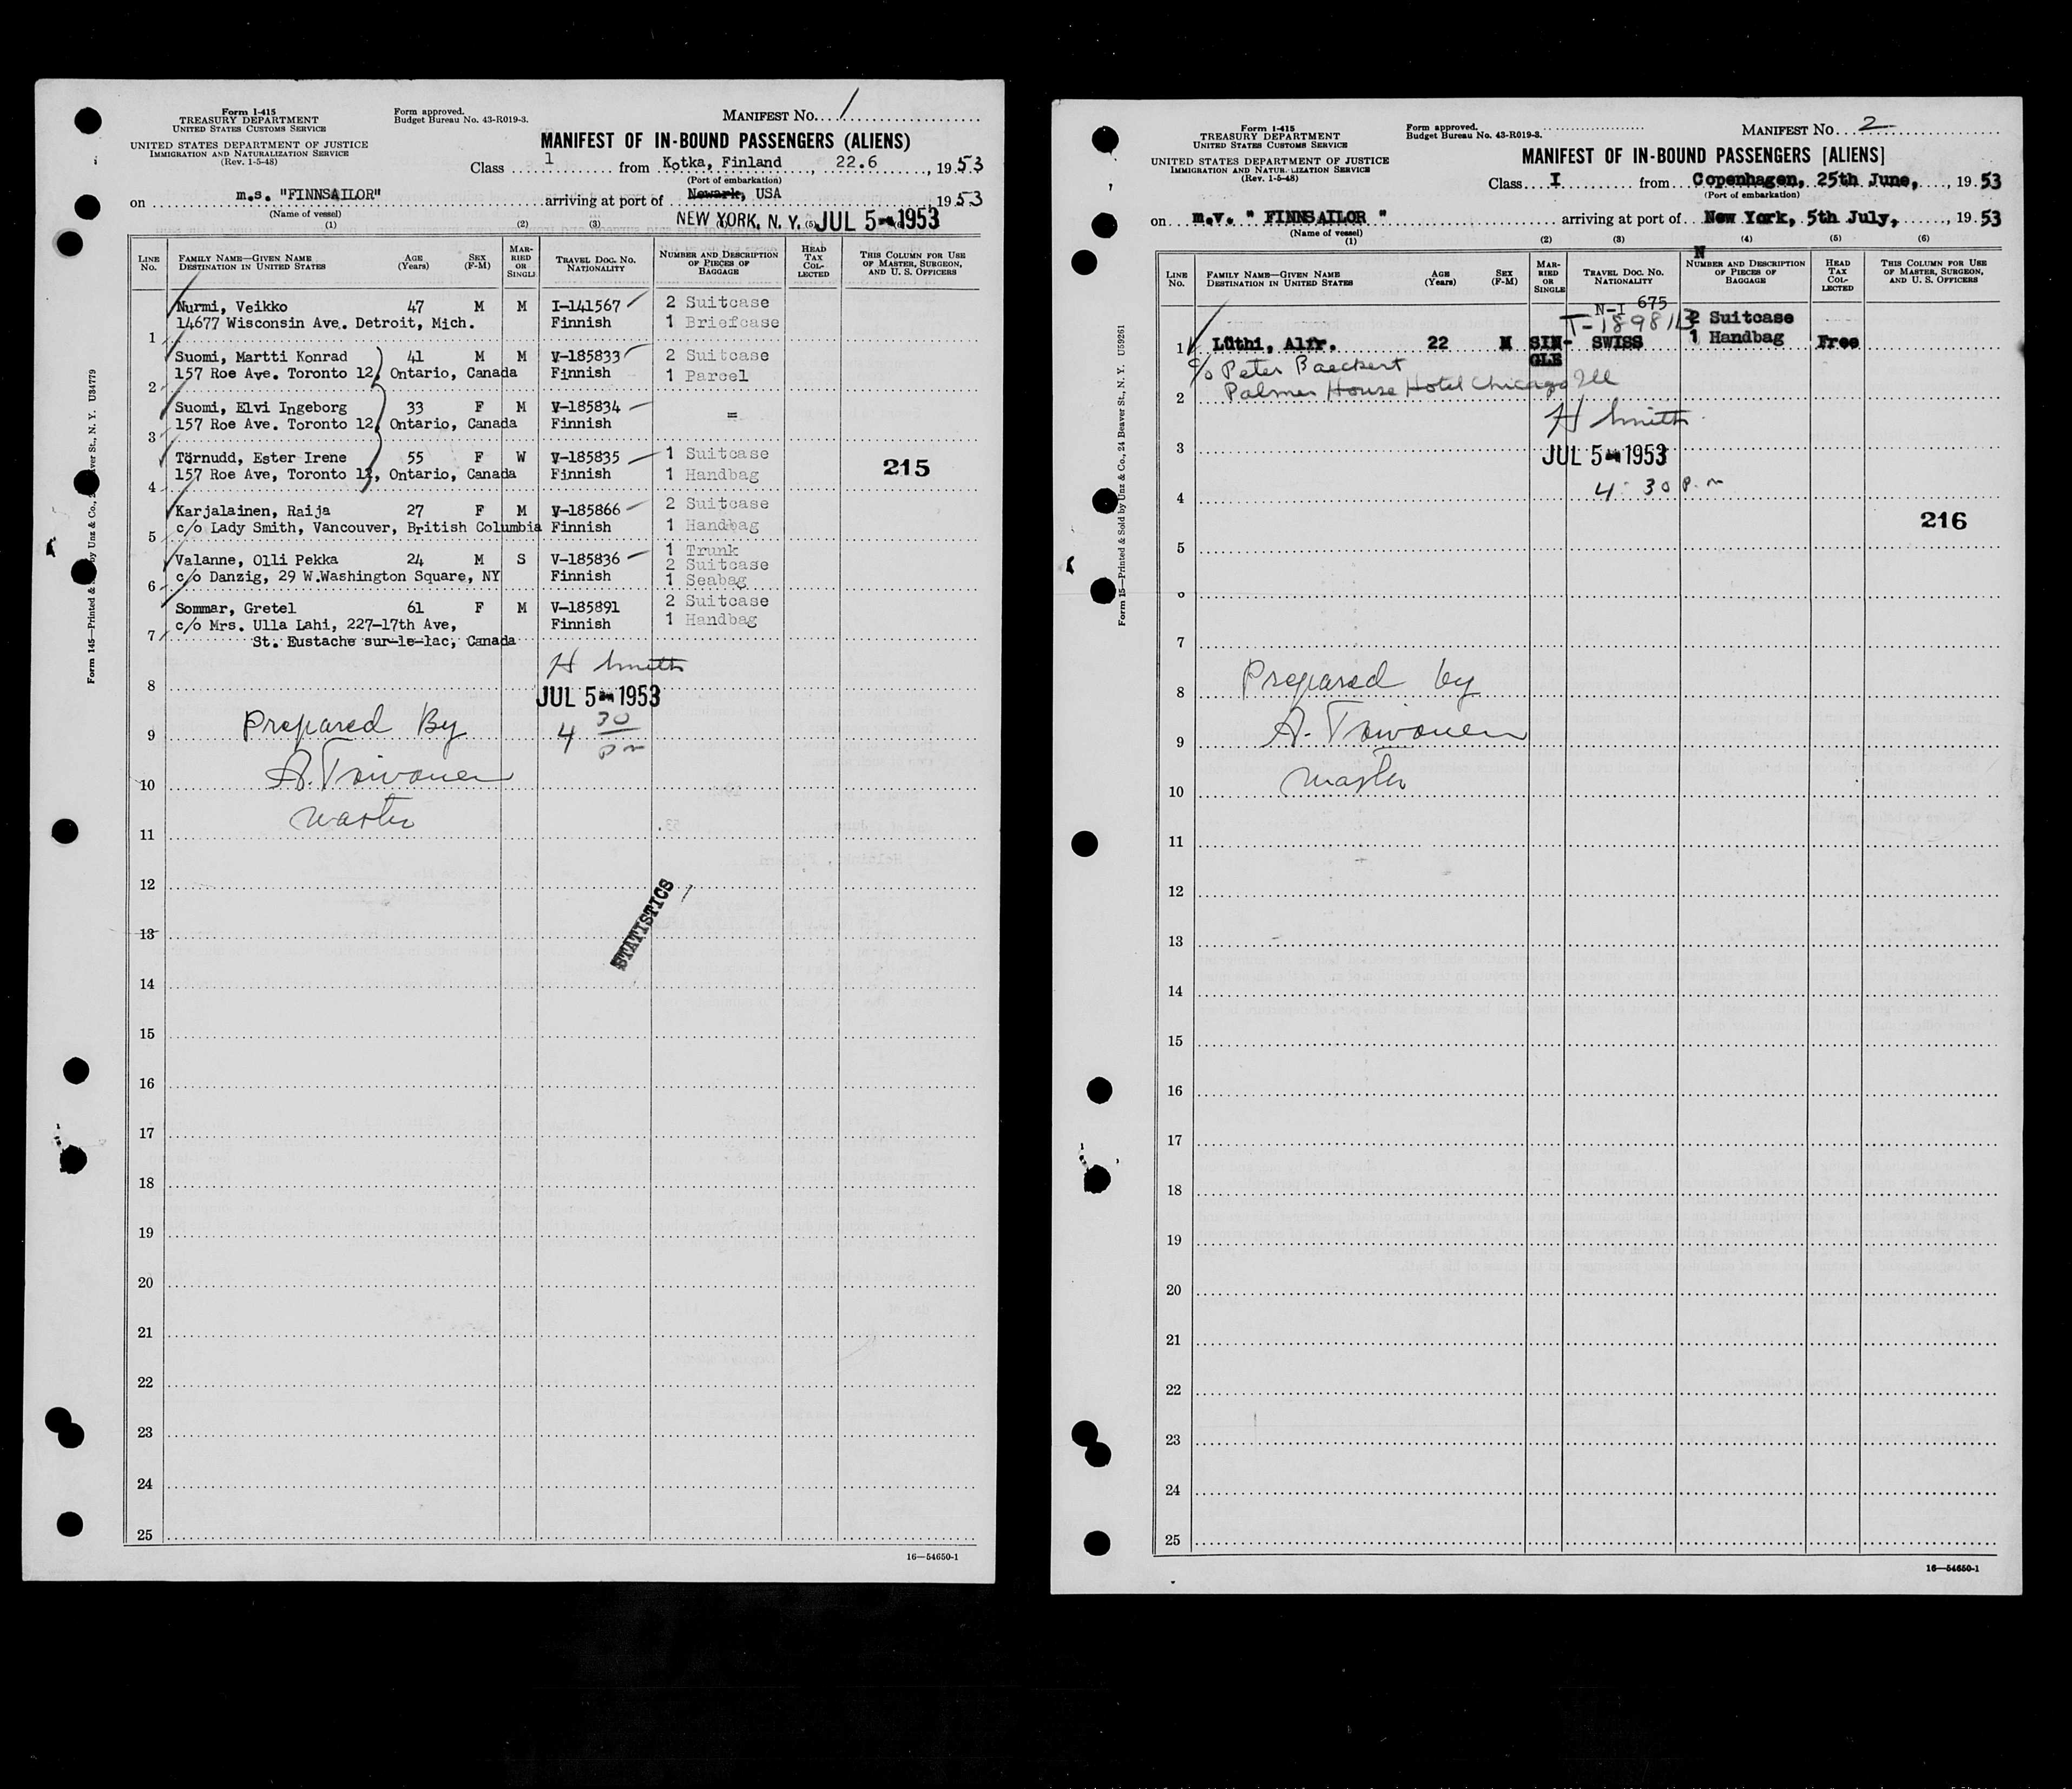 Form I-415
TREASURY DEPARTMENT
UNITED STATES CUSTOMS SERVICE
UNITED STATES DEPARTMENT OF JUSTICE
IMMIGRATION AND NATURALIZATION SERVICE
(Rev. 1-5-48)
Form approved.
Budget Bureau No. 43-R019-3.
MANIFEST No. 1
MANIFEST OF IN-BOUND PASSENGERS (ALIENS)
Class 1 from Kotka, Finland, 22.6, 1953
(Port of embarkation)
on m.s. "FINNSAILOR" arriving at port of Newark, USA 1953
(Name of vessel)
NEW YORK, N. Y. JUL 5 1953
(1) (2) (3) (5)
LINE No. FAMILY NAME—GIVEN NAME DESTINATION IN UNITED STATES AGE (Years) SEX (F-M) MARRIED OR SINGLE TRAVEL DOC. NO. NATIONALITY NUMBER AND DESCRIPTION OF PIECES OF BAGGAGE HEAD TAX COLLECTED THIS COLUMN FOR USE OF MASTER, SURGEON, AND U. S. OFFICERS
Nurmi, Veikko 47 M M I-141567 2 Suitcase
1 14677 Wisconsin Ave. Detroit, Mich. Finnish 1 Briefcase
Suomi, Martti Konrad 41 M M V-185833 2 Suitcase
2 157 Roe Ave. Toronto 12, Ontario, Canada Finnish 1 Parcel
Suomi, Elvi Ingeborg 33 F M V-185834 =
3 157 Roe Ave. Toronto 12, Ontario, Canada Finnish
Törnudd, Ester Irene 55 F W V-185835 1 Suitcase
4 157 Roe Ave, Toronto 12, Ontario, Canada Finnish 1 Handbag
215
Karjalainen, Raija 27 F M V-185866 2 Suitcase
5 c/o Lady Smith, Vancouver, British Columbia Finnish 1 Handbag
Valanne, Olli Pekka 24 M S V-185836 1 Trunk
2 Suitcase
6 c/o Danzig, 29 W.Washington Square, NY Finnish 1 Seabag
Sommar, Gretel 61 F M V-185891 2 Suitcase
7 c/o Mrs. Ulla Lahi, 227-17th Ave, Finnish 1 Handbag
St. Eustache sur-le-lac, Canada
H Smith
8 JUL 5 1953
9 Prepared By 4 30 pm
10 A. Toivonen
11 master
12
13 STATISTICS
14
15
16
17
18
19
20
21
22
23
24
25
16—54650-1
U34779
Form I-415
TREASURY DEPARTMENT
UNITED STATES CUSTOMS SERVICE
UNITED STATES DEPARTMENT OF JUSTICE
IMMIGRATION AND NATURALIZATION SERVICE
(Rev. 1-5-48)
Form approved.
Budget Bureau No. 43-R019-3.
MANIFEST No. 2
MANIFEST OF IN-BOUND PASSENGERS [ALIENS]
Class I from Copenhagen, 25th June, 1953
(Port of embarkation)
on m.v. " FINNSAILOR " arriving at port of New York, 5th July, 1953
(Name of vessel)
(1) (2) (3) (4) (5) (6)
N
LINE No. FAMILY NAME—GIVEN NAME DESTINATION IN UNITED STATES AGE (Years) SEX (F-M) MARRIED OR SINGLE TRAVEL DOC. NO. NATIONALITY NUMBER AND DESCRIPTION OF PIECES OF BAGGAGE HEAD TAX COLLECTED THIS COLUMN FOR USE OF MASTER, SURGEON, AND U. S. OFFICERS
N-I 675
T-189813 2 Suitcase
1 Lüthi, Alfr. 22 M SIN-GLE SWISS 1 Handbag Free
c/o Peter Baeckert
2 Palmer House Hotel Chicago Ill
H Smith
3 JUL 5 1953
4 4:30 p.m
216
5
6
7
8 Prepared by
9 A. Toivonen
10 master
11
12
13
14
15
16
17
18
19
20
21
22
23
24
25
16—54650-1
Form 15—Printed & Sold by Unz & Co., 24 Beaver St., N. Y. U59261